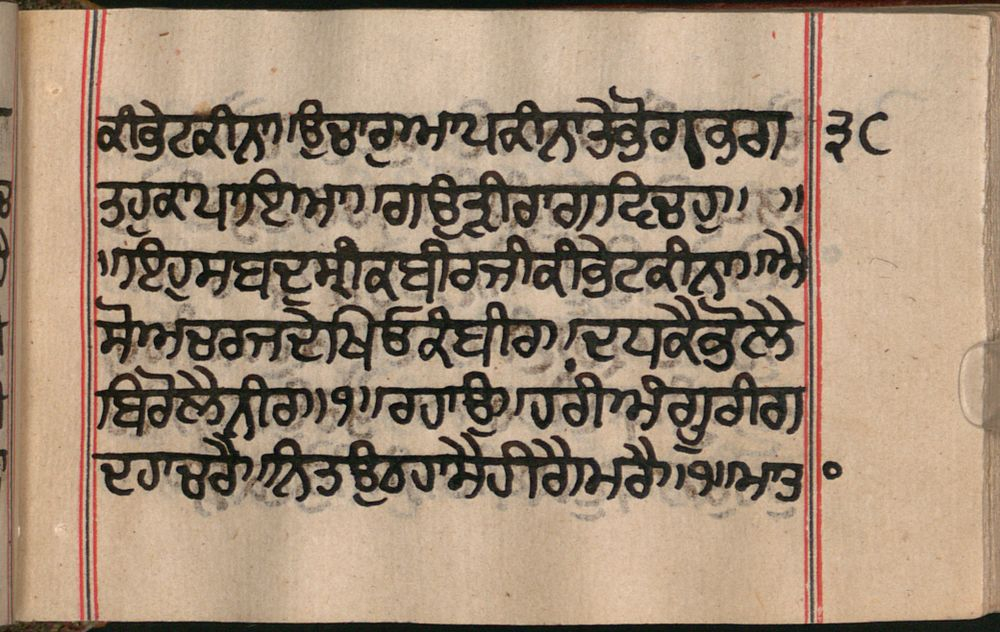 ਕੀ ਭੇਟ ਕੀਨਾ ॥ ਉਚਾਰੁ ਆਪ ਕੀਨਾ ਤੇ ਭੋਗ ਭਗ ੩੮
ਤਹੁ ਕਾ ਪਾਇਆ ॥ ਗਉੜੀ ਰਾਗ ਵਿਚਹੁ ॥ ॥
॥ ਇਹੁ ਸਬਦੁ ਸ੍ਰੀ ਕਬੀਰ ਜੀ ਕੀ ਭੇਟ ਕੀਨਾ ॥ ਐ
ਸੋ ਅਚਰਜ ਦੇਖਿਓ ਕੰਬੀਰ ॥ ਦਧ ਕੈ ਭੋਲੈ
ਬਿਰੋਲੈ ਨੀਰ ॥੧॥ ਰਹਾਉ ॥ ਹਰੀ ਅੰਗੂਰੀ ਗ
ਦਹਾ ਚਰੈ ॥ ਨਿਤ ਉਠ ਹਾਸੈ ਹੀਗੈ ਮਰੈ ॥੧॥ ਮਾਤ °